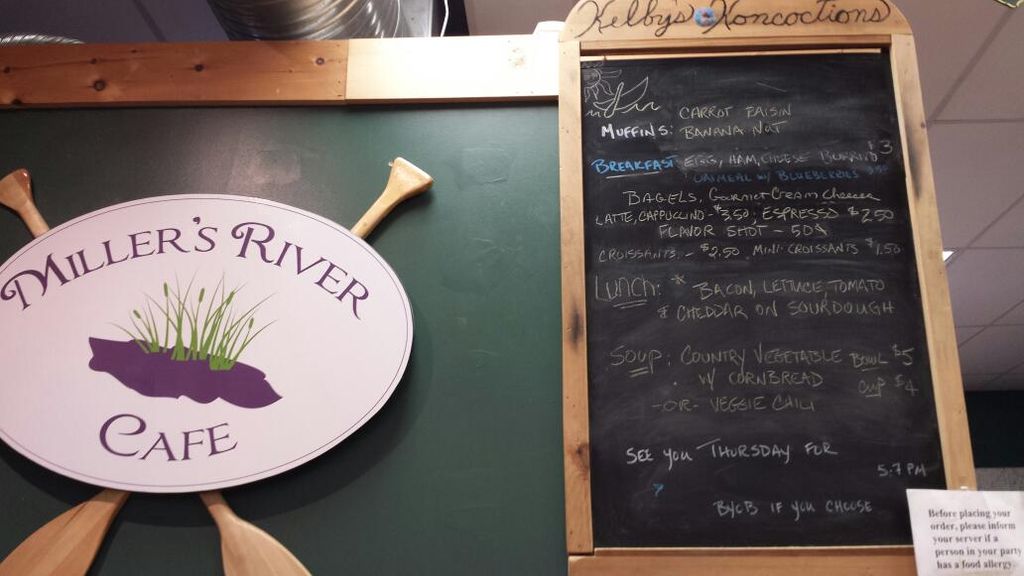 MILLER'S RIVER
CAFE
Kelby's Koncoctions
MUFFINS: CARROT RAISIN
BANANA NUT
BREAKFAST EGG, HAM, CHEESE BURRITO $3
OATMEAL W/ BLUEBERRIES
BAGELS, Gourmet Cream Cheese
LATTE, CAPPUCCINO - $3.50, ESPRESSO $2.50
FLAVOR SHOT - 50¢
CROISSANTS - $2.50, MINI CROISSANTS $1.50
LUNCH: * BACON, LETTUCE, TOMATO
& CHEDDAR ON SOURDOUGH
SOUP: COUNTRY VEGETABLE BOWL $5
W/ CORNBREAD CUP $4
-OR- VEGGIE CHILI
SEE YOU THURSDAY FOR
5-7 PM
BYOB IF YOU CHOOSE
Before placing your
order, please inform
your server if a
person in your party
has a food allergy.